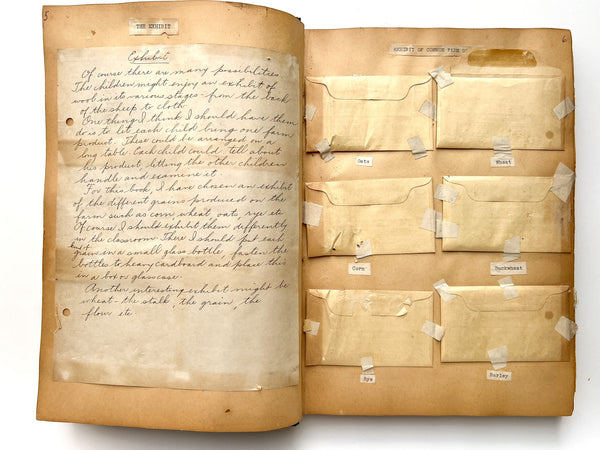 5
THE EXHIBIT
Exhibit
Of course there are many possibilities.
The children might enjoy an exhibit of
wool in its various stages - from the back
of the sheep to cloth.
One thing I think I should have them
do is to let each child bring one farm
product. These could be arranged on a
long table. Each child could tell about
his product letting the other children
handle and examine it.
For this book, I have chosen an exhibit
of the different grains produced on the
farm such as corn, wheat, oats, rye etc.
Of course I should exhibit them differently
in the classroom. There I should put each
kind of
grain in a small glass bottle, fasten the
bottles to heavy cardboard and place this
in a box or glass case.
Another interesting exhibit might be
wheat - the stalk, the grain, the
flour etc.
6
EXHIBIT OF COMMON FARM
Oats
Wheat
Corn
Buckwheat
Rye
Barley